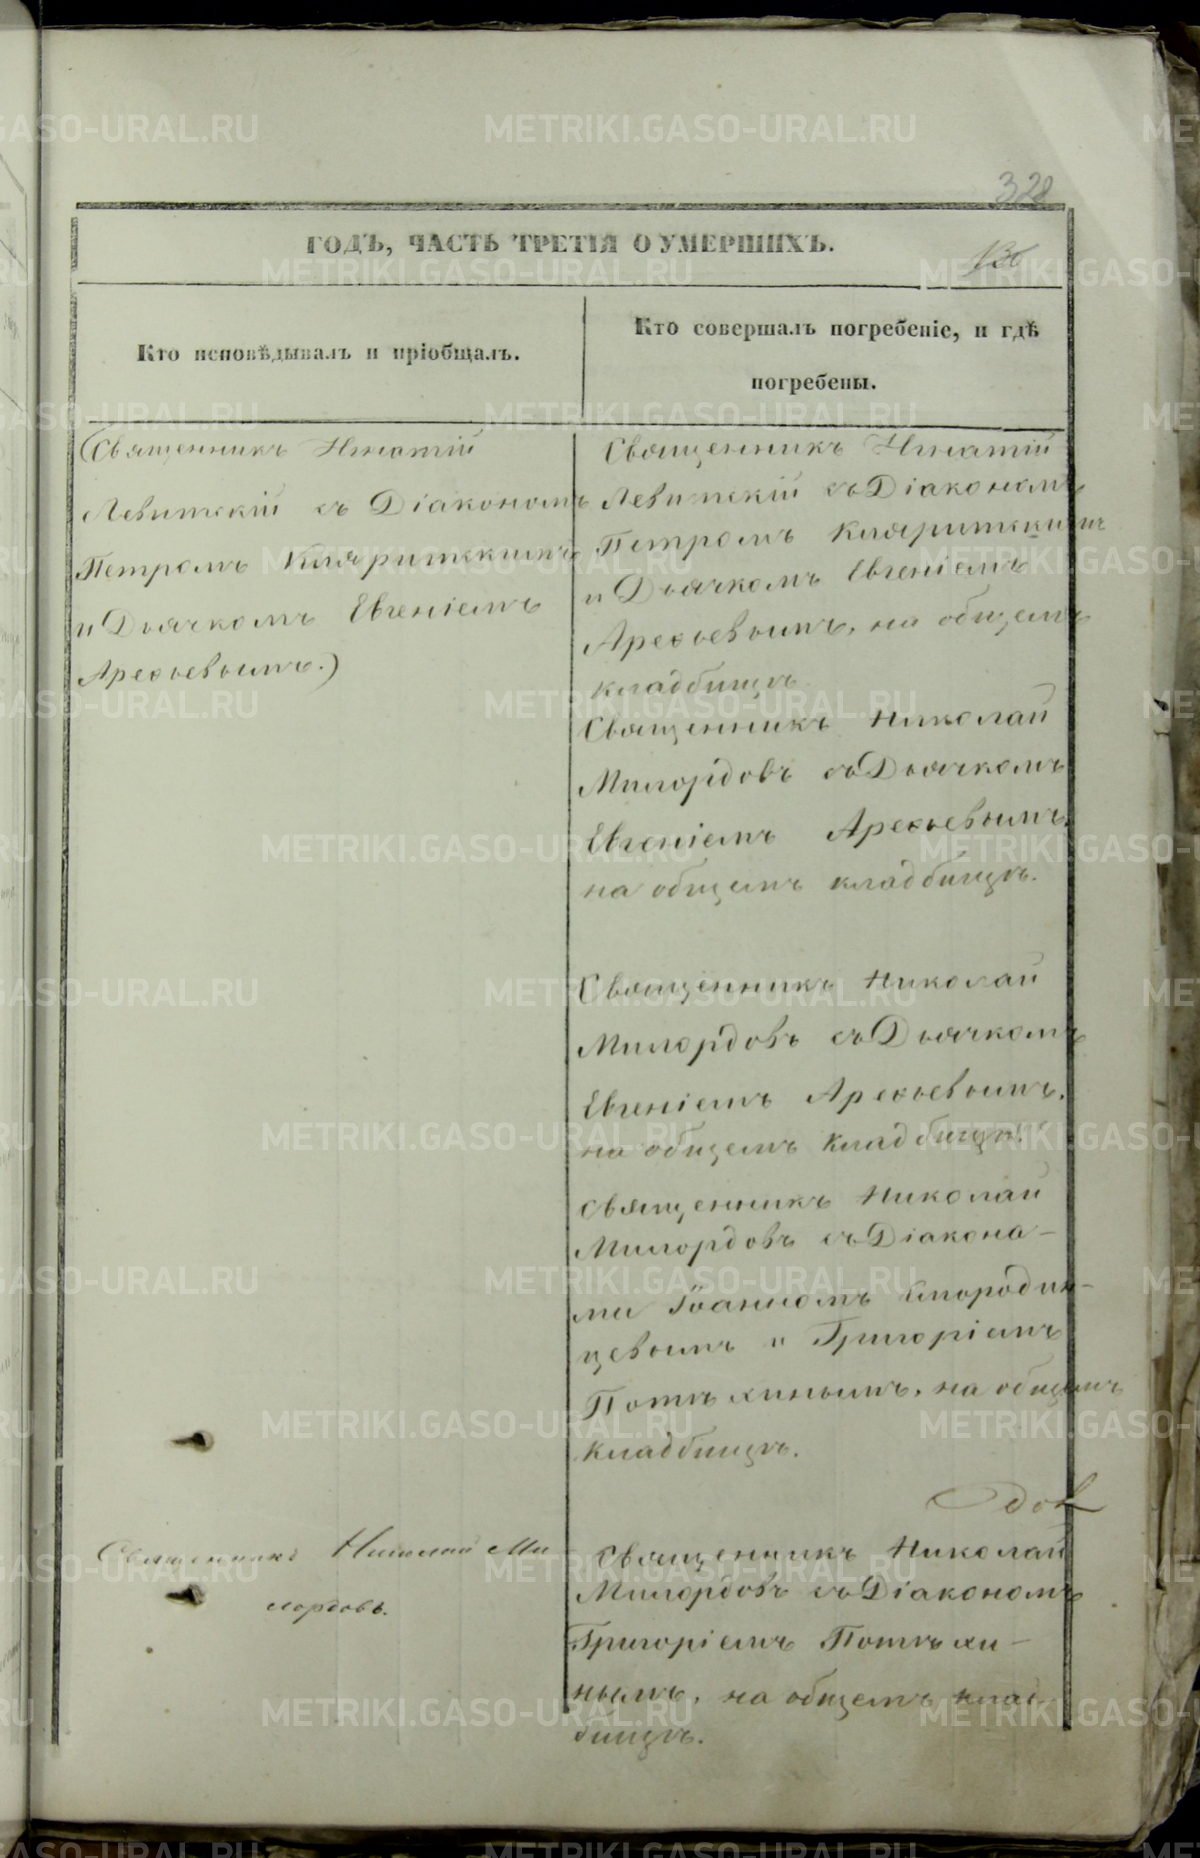 328
ГОДЪ, ЧАСТЬ ТРЕТІЯ О УМЕРШИХЪ.
Кто исповѣдывалъ и пріобщалъ.
Кто совершалъ погребеніе, и гдѣ
погребены.
(Священникъ Игнатій
Левитскій съ Діакономъ
Петромъ Кляритскимъ
и Дьячкомъ Евгеніемъ
Арефьевымъ.)
Священникъ Николай Ми
лордовъ.
Священникъ Игнатій
Левитскій съ Діакономъ
Петромъ Кляритскимъ
и Дьячкомъ Евгеніемъ
Арефьевымъ, на общемъ
кладбищѣ
Священникъ Николай
Милордовъ съ Дьячкомъ
Евгеніемъ Арефьевымъ,
на общемъ кладбищѣ.
Священникъ Николай
Милордовъ съ Дьячкомъ
Евгеніемъ Арефьевымъ,
на общемъ кладбищѣ.
Священникъ Николай
Милордовъ съ Діакона-
ми Іоанномъ Смородин-
цевымъ и Григоріемъ
Потѣхинымъ, на общемъ
кладбищѣ.
Священникъ Николай
Милордовъ съ Діакономъ
Григоріемъ Потѣхи-
нымъ, на общемъ клад
бищѣ.
METRIKI.GASO-URAL.RU